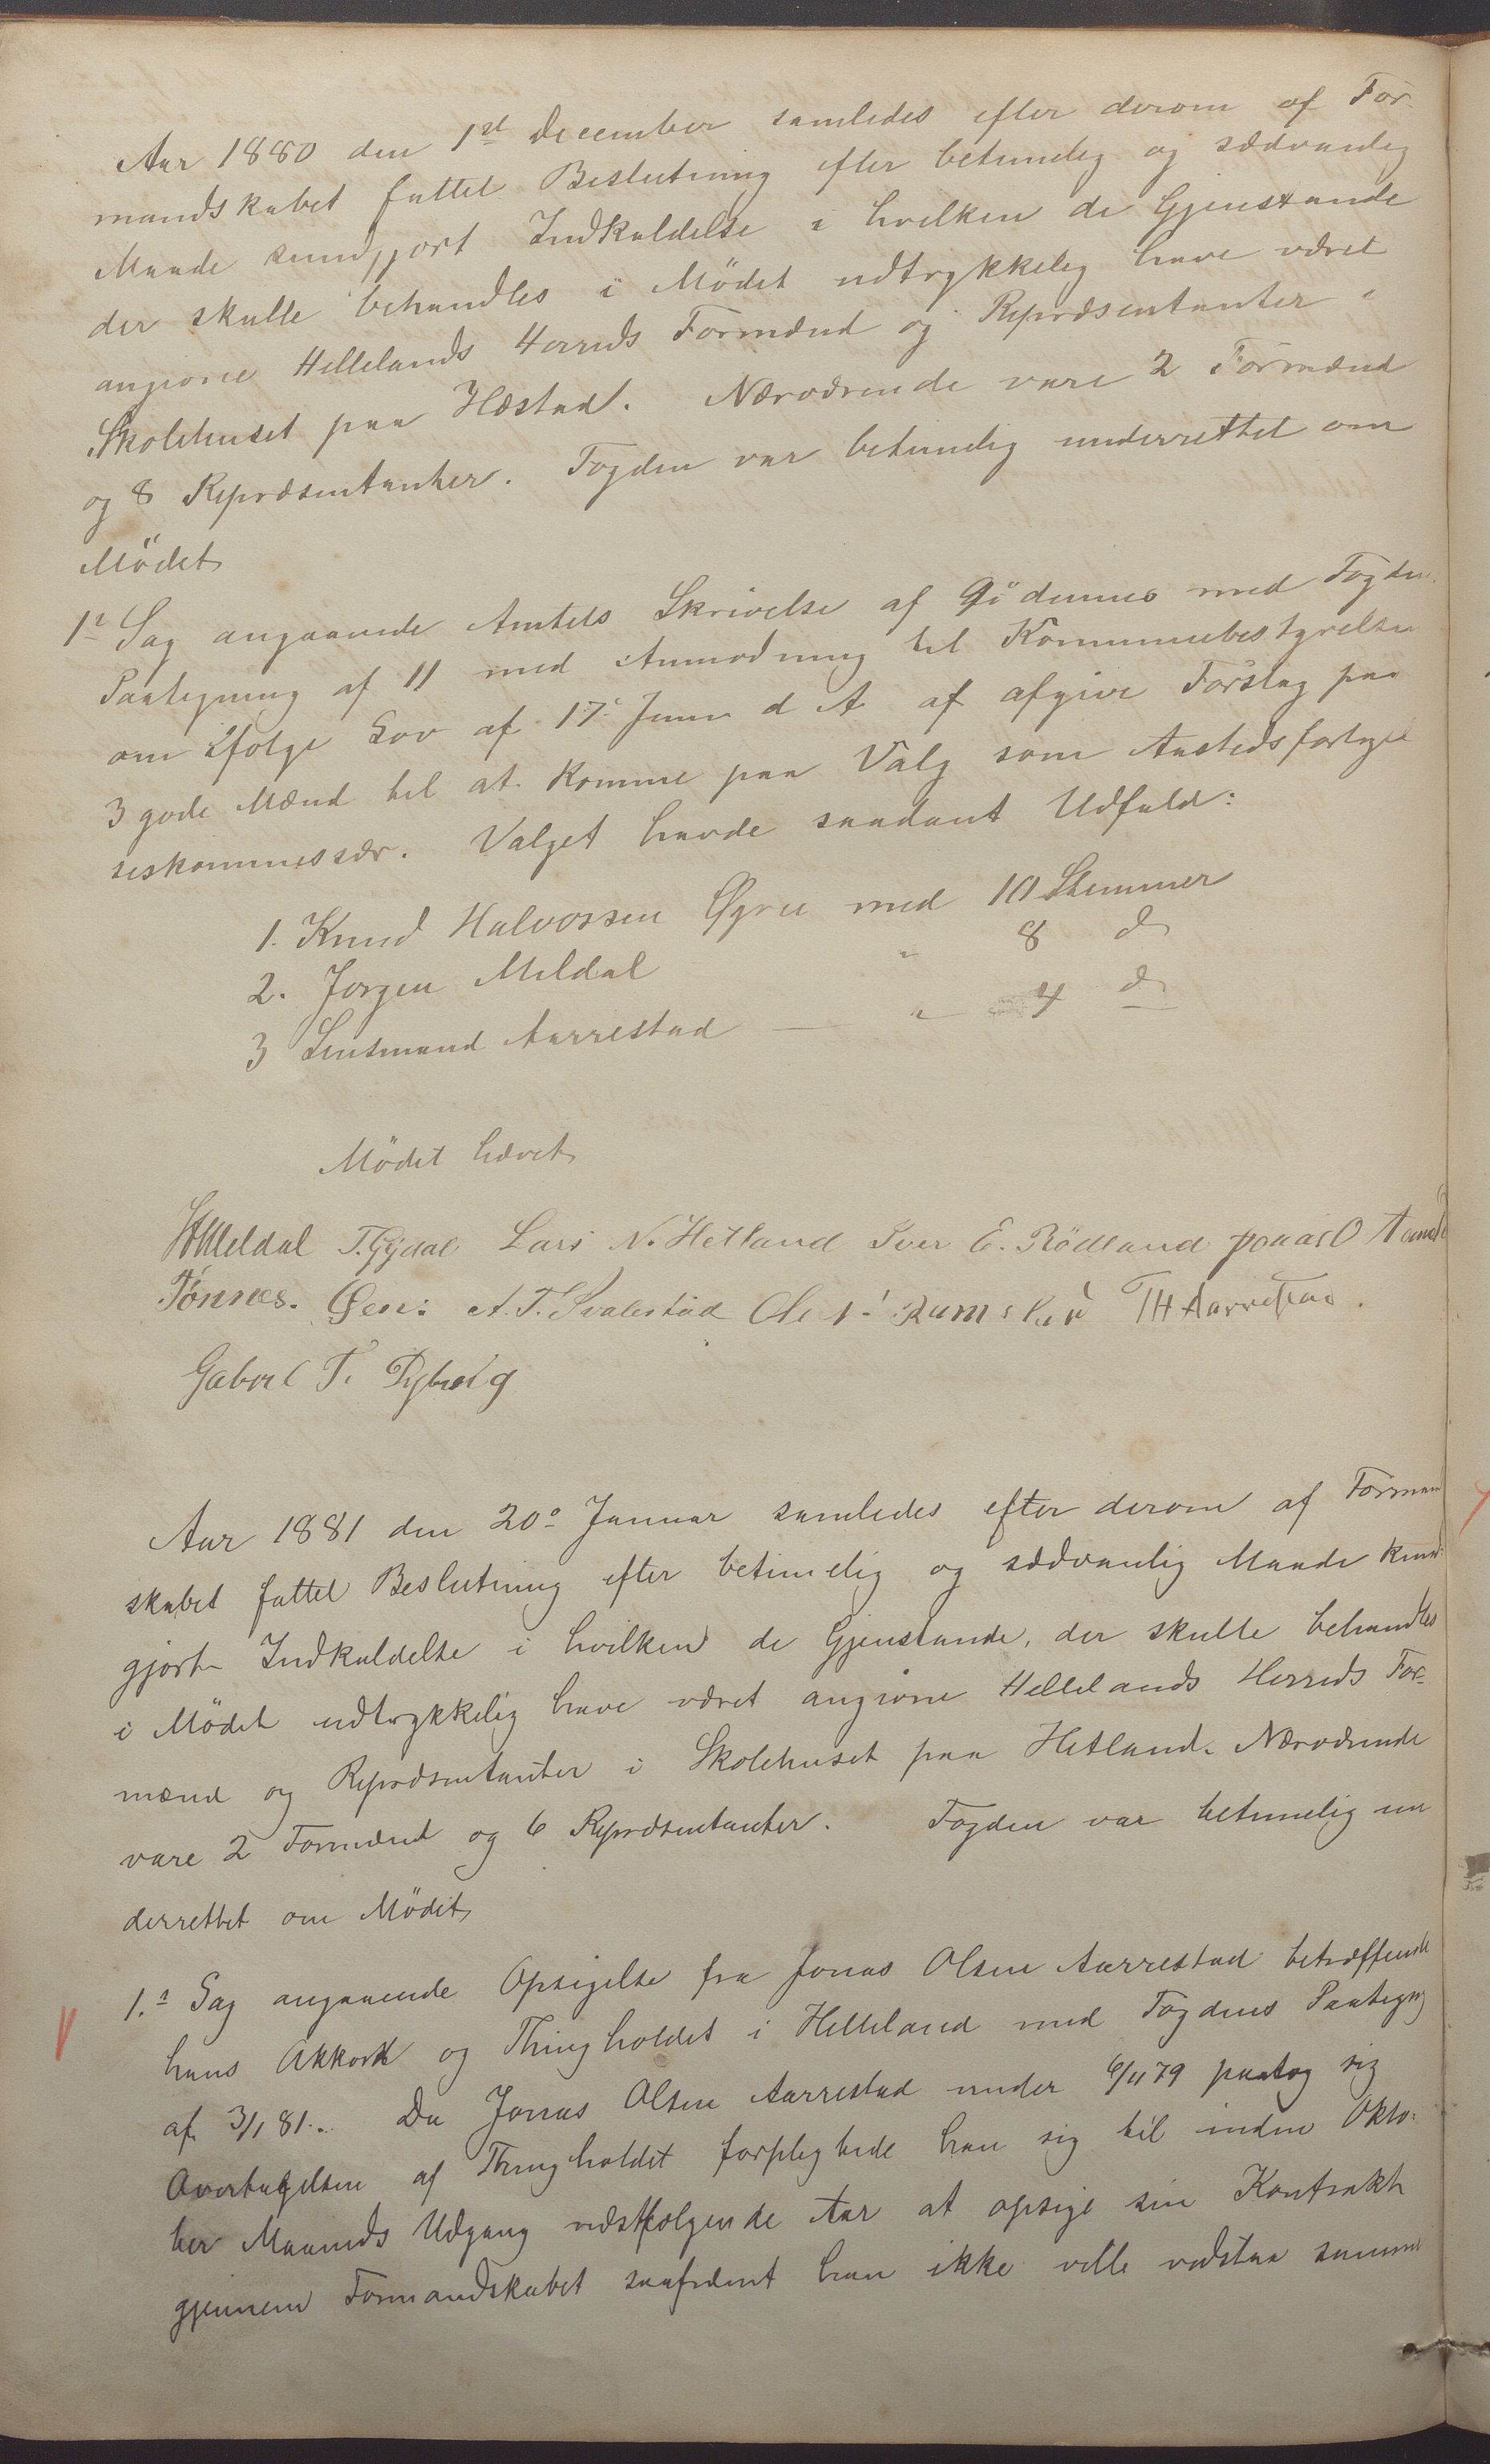 Aar 1880 den 1ste December samledes efter derom af For-
mandskabet fattet Beslutning efter betimelig og sædvanlig
Maade kundgjort Indkaldelse i hvilken de Gjenstande
der skulle behandles i Mödet udtrykkelig have været
angivne Hellelands Herreds Formænd og Repræsentanter i
Skolehuset paa Hæstad. Nærværende vare 2 Formænd
og 8 Repræsentanter. Fogden var betimelig underrettet om
Mödet
1ste Sag angaaende Amtets Skrivelse af 9de dennes med Fogdens
Paategning af 11 med Anmodning til Kommunebestyrelsen
om ifølge Lov af 17de Juni d A at afgive Forslag paa
3 gode Mænd til at komme paa Valg som Aastedsfortyel
seskommissær. Valget havde saadant Udfald:
1. Knud Halvorsen Øgree med 10 Stemmer
2. Jørgen Meldal " 8 do
3 Lensmand Aarrestad — " 4 do
Mödet hævet
Meldal T. Gydal Lars N. Hetland Iver E. Rödland O
Tönnes. Øen: A. T. Svalestad Ole TH Aarrestad.
Gabril T. Dybing
Aar 1881 den 20de Januar samledes efter derom af Formand
skabet fattet Beslutning efter betimelig og sædvanlig Maade kund-
gjort Indkaldelse i hvilken de Gjenstande, der skulle behandles
i Mödet udtrykkelig have været angivne Hellelands Herreds For-
mænd og Repræsentanter i Skolehuset paa Hetland. Nærværende
vare 2 Formænd og 6 Repræsentanter. Fogden var betimelig un
derrettet om Mödet
1.ste Sag angaaende Opsigelse fra Jonas Olsen Aarrestad betræffende
hans Akkord og Thingholdet i Helleland med Fogdens Paategng
af 3/1 81. Da Jonas Olsen Aarrestad under 6/11 79 paatog sig
Overtagelsen af Thingholdet forpligtede han sig til inden Okto-
ber Maaneds Udgang næstfølgende Aar at opsige sin Kontrakt
gjennem Formandskabet saafremt han ikke ville vedstaa samme